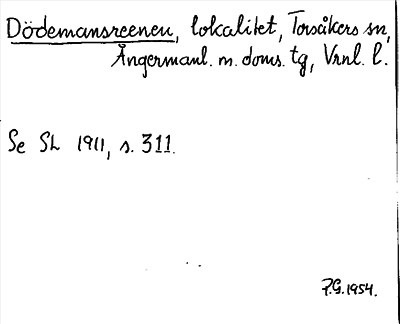 Dödemansreenen, lokalitet, Torsåkers sn,
Ångermanl. m. doms. tg, Vrnl. l.
Se SL 1911, s. 311.
P.G. 1954.